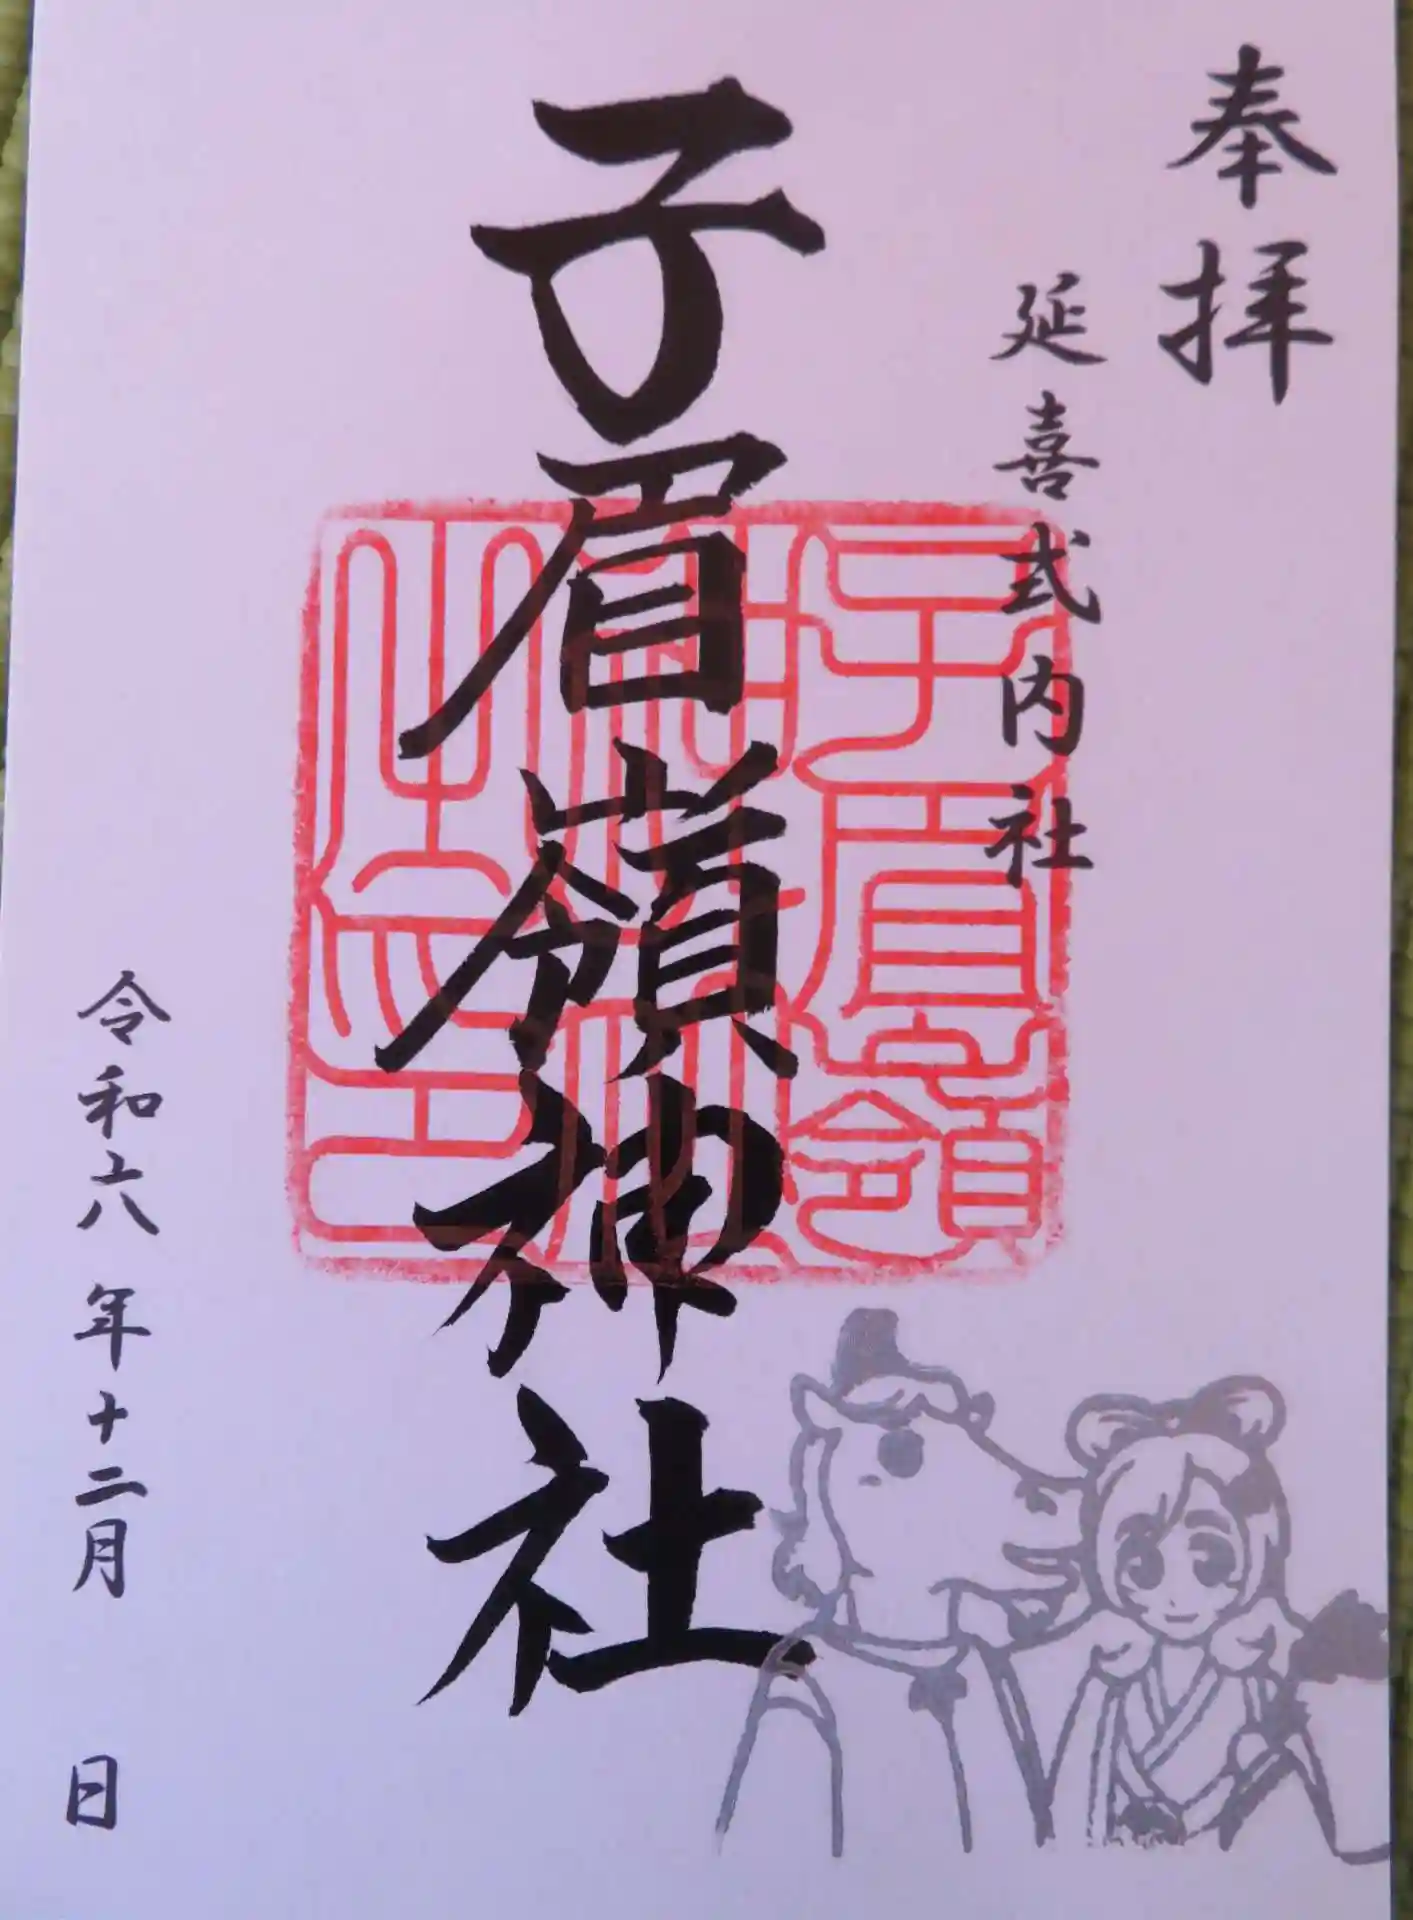 奉拝
延喜式内社
子眉嶺神社
子眉嶺神社之印
令和六年十二月 日